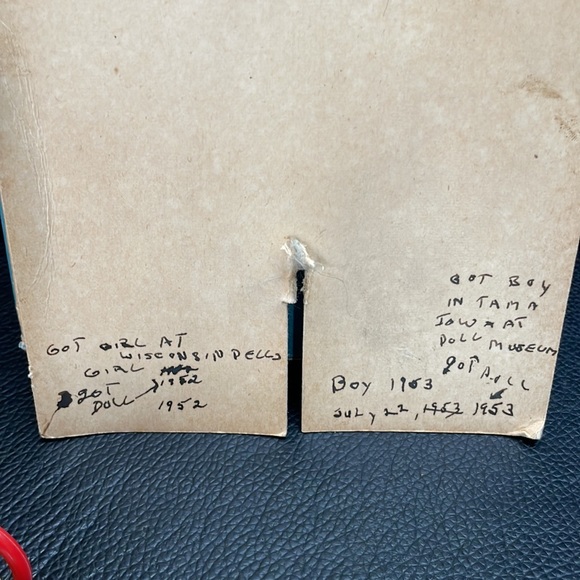 GOT GIRL AT
WISCONSIN DELLS
GIRL
1952
got
DOLL
1952
GOT BOY
IN TAMA
IOWA AT
DOLL MUSEUM
got DOLL
Boy 1953
JULY 22, 1953 1953